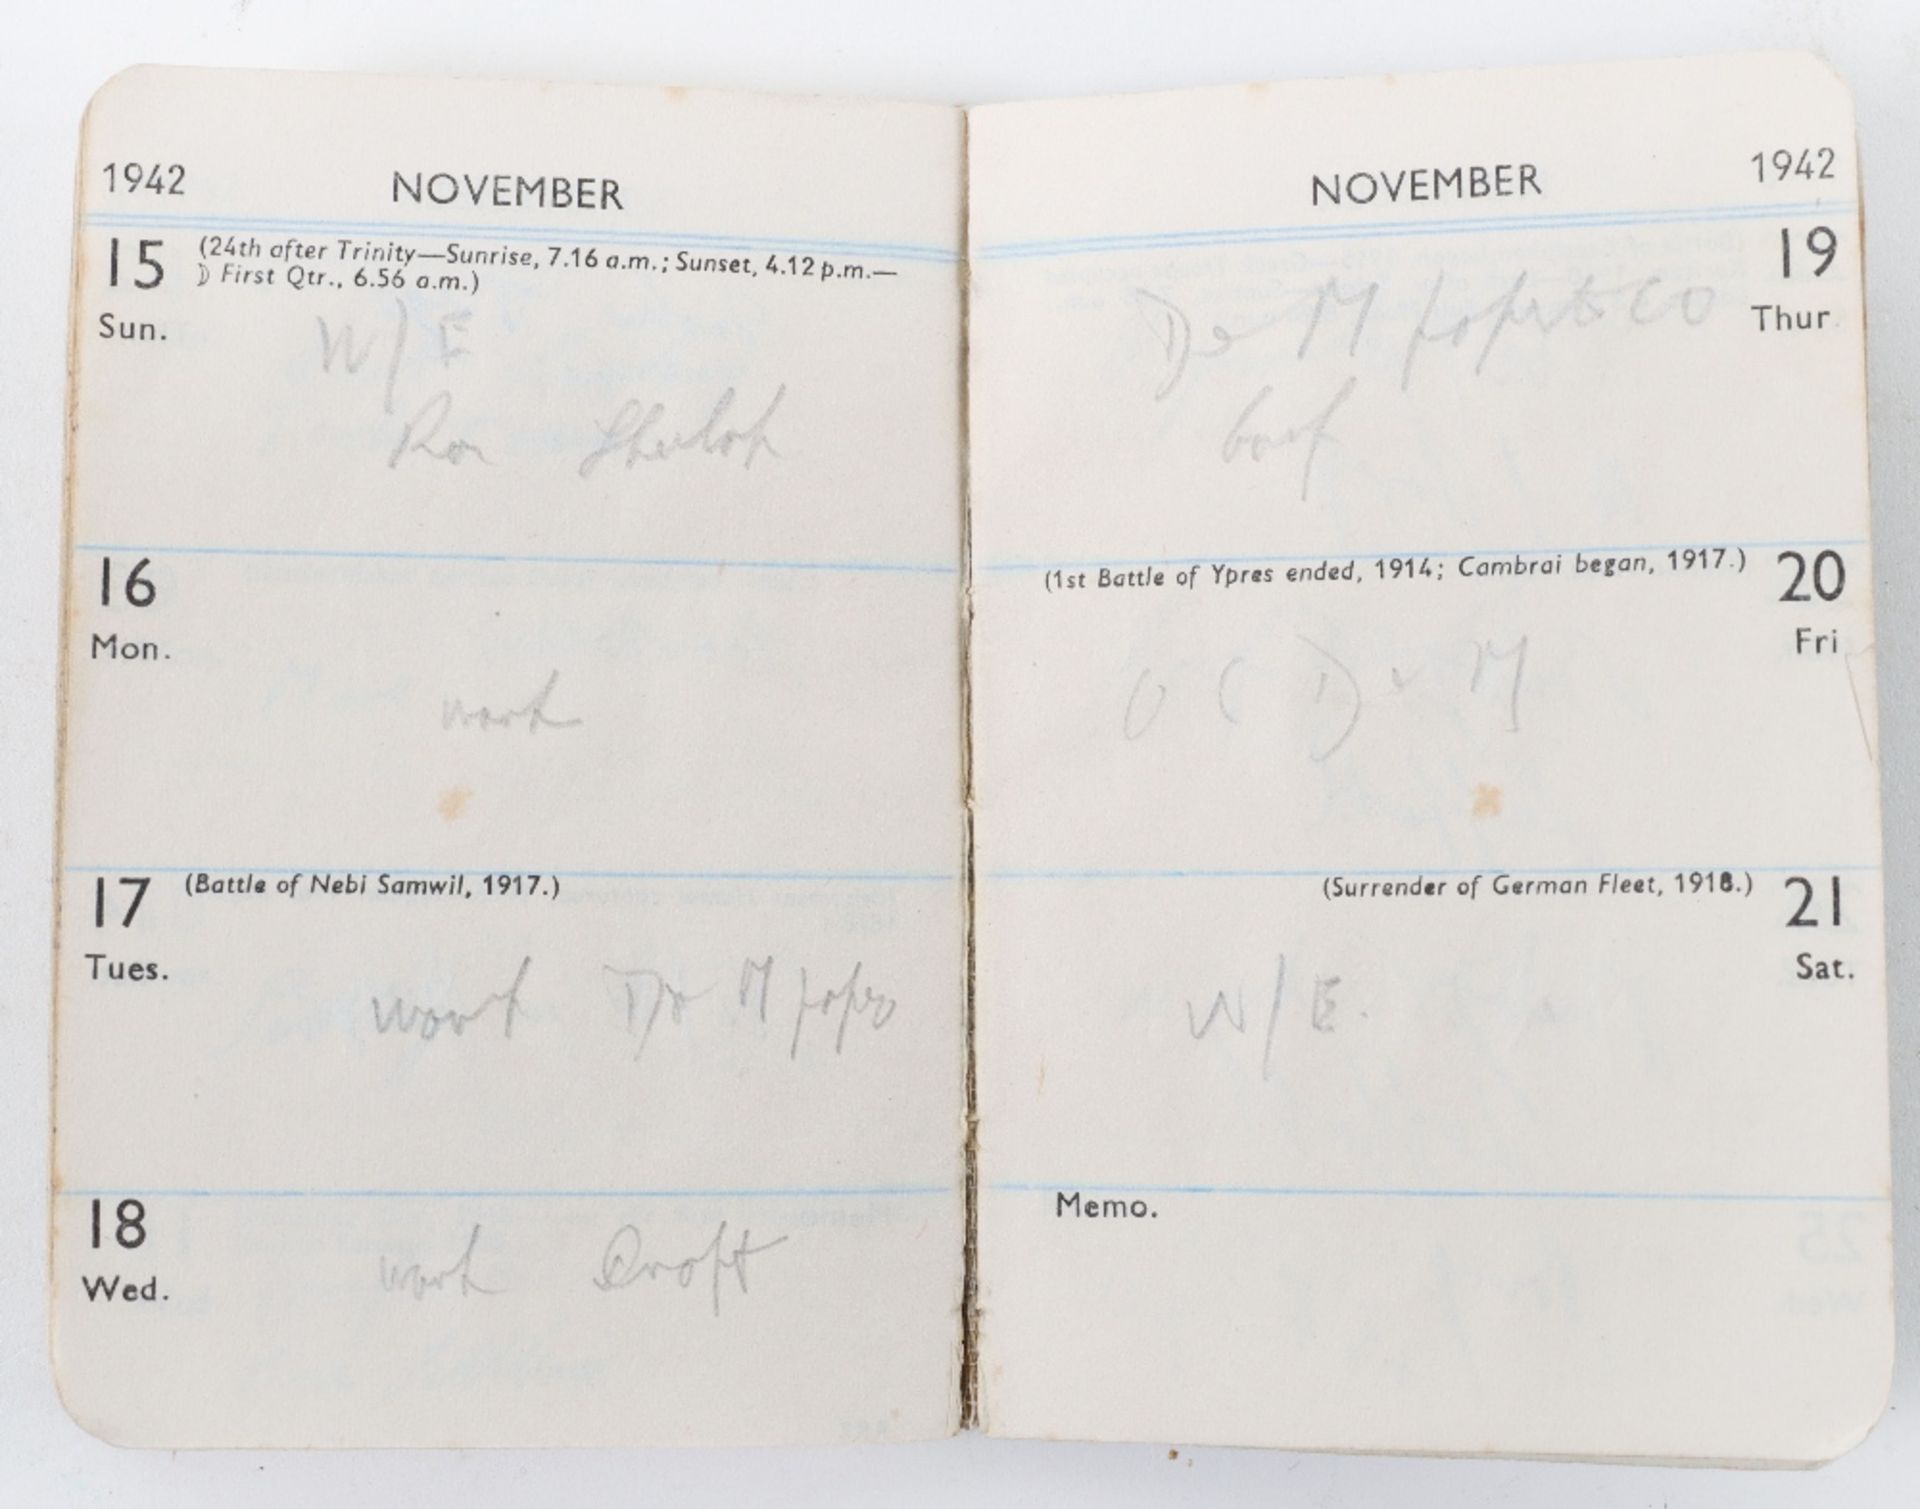 1942 NOVEMBER
15 (24th after Trinity—Sunrise, 7.16 a.m.; Sunset, 4.12 p.m.—
☽ First Qtr., 6.56 a.m.)
Sun.
W/E
Ron
16
Mon.
work
17 (Battle of Nebi Samwil, 1917.)
Tues.
work De M
18
Wed.
work Croft
NOVEMBER 1942
19
Thur.
De M CO
(1st Battle of Ypres ended, 1914; Cambrai began, 1917.) 20
Fri
O C De M
(Surrender of German Fleet, 1918.) 21
Sat.
W/E.
Memo.